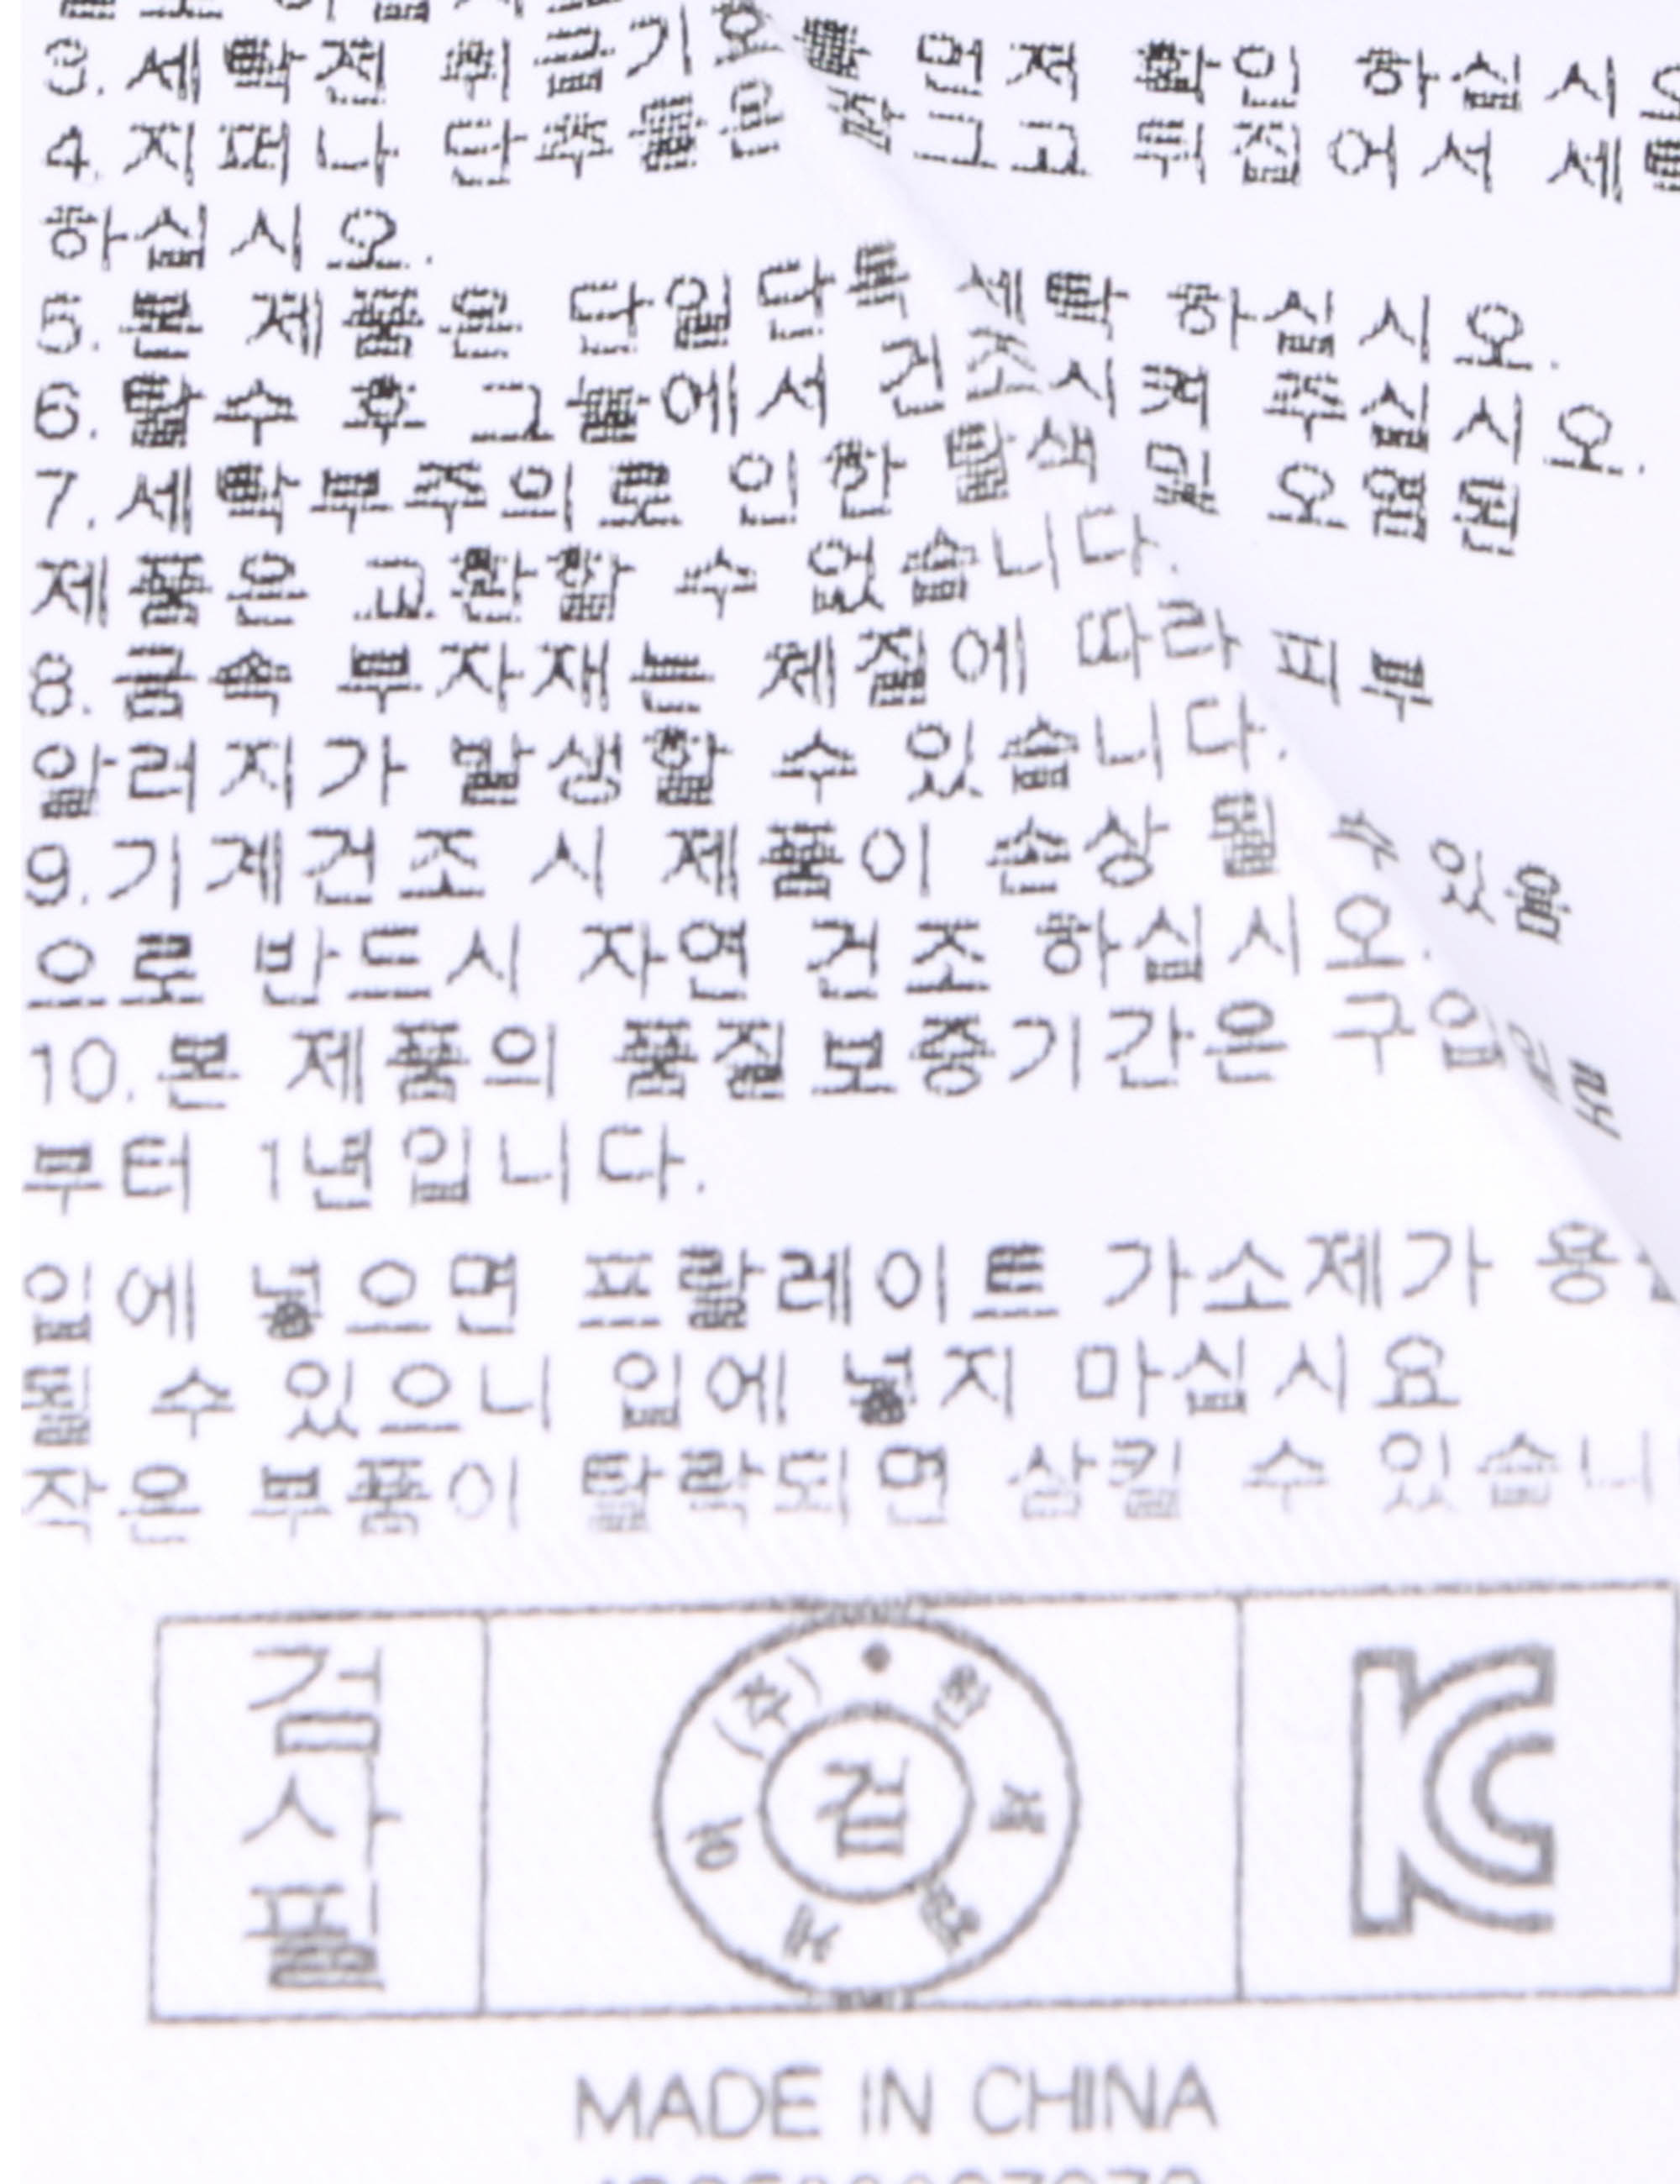 3. 세탁전 취급기호를 먼저 확인 하십시오
4. 지퍼나 단추를 잠그고 뒤집어서 세탁
하십시오.
5. 본 제품은 단일단독 세탁 하십시오.
6. 탈수 후 그늘에서 건조시켜 주십시오.
7. 세탁부주의로 인한 탈색 및 오염된
제품은 교환할 수 없습니다.
8. 금속 부자재는 체질에 따라 피부
알러지가 발생할 수 있습니다.
9. 기계건조 시 제품이 손상 될 수 있음
으로 반드시 자연 건조 하십시오.
10. 본 제품의 품질보증기간은 구입
부터 1년입니다.
입에 넣으면 프탈레이트 가소제가 용출
될 수 있으니 입에 넣지 마십시요
작은 부품이 탈락되면 삼킬 수 있습니
검사필
(주)한세엠케이
검
KC
MADE IN CHINA